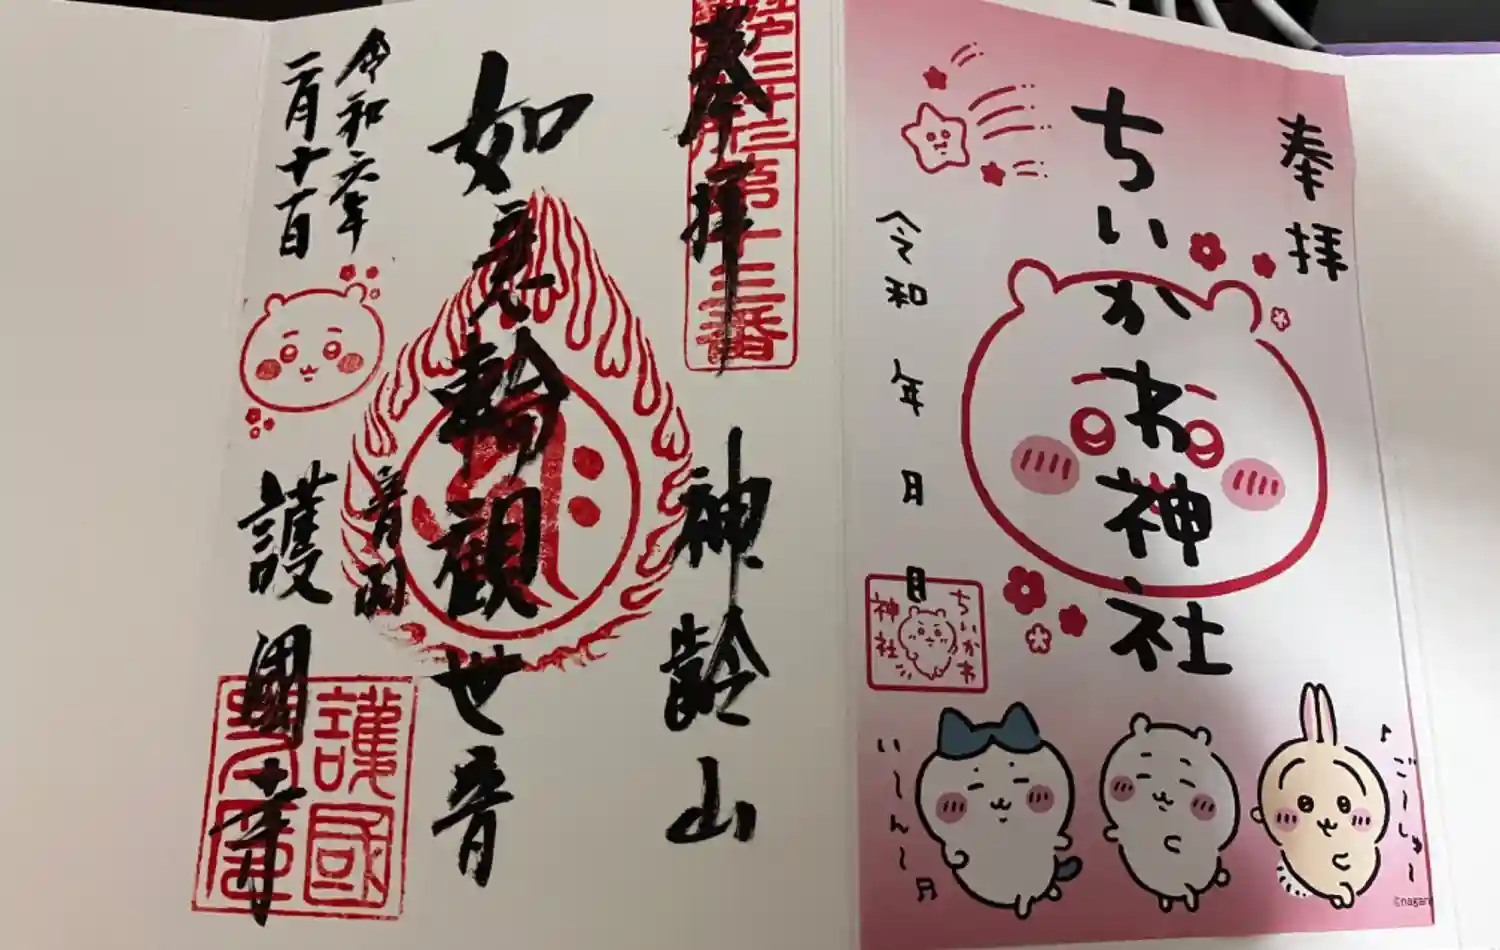 奉拝
ちいかわ神社
令和 年 月 日
ちいかわ
神社
い〜ん〜♬
♪ご〜しゅ〜
©nagano
江戸三十三
第十三番
奉拝
神齢山
如意輪観世音
令和六年
二月十一日
音羽
護國寺
護國